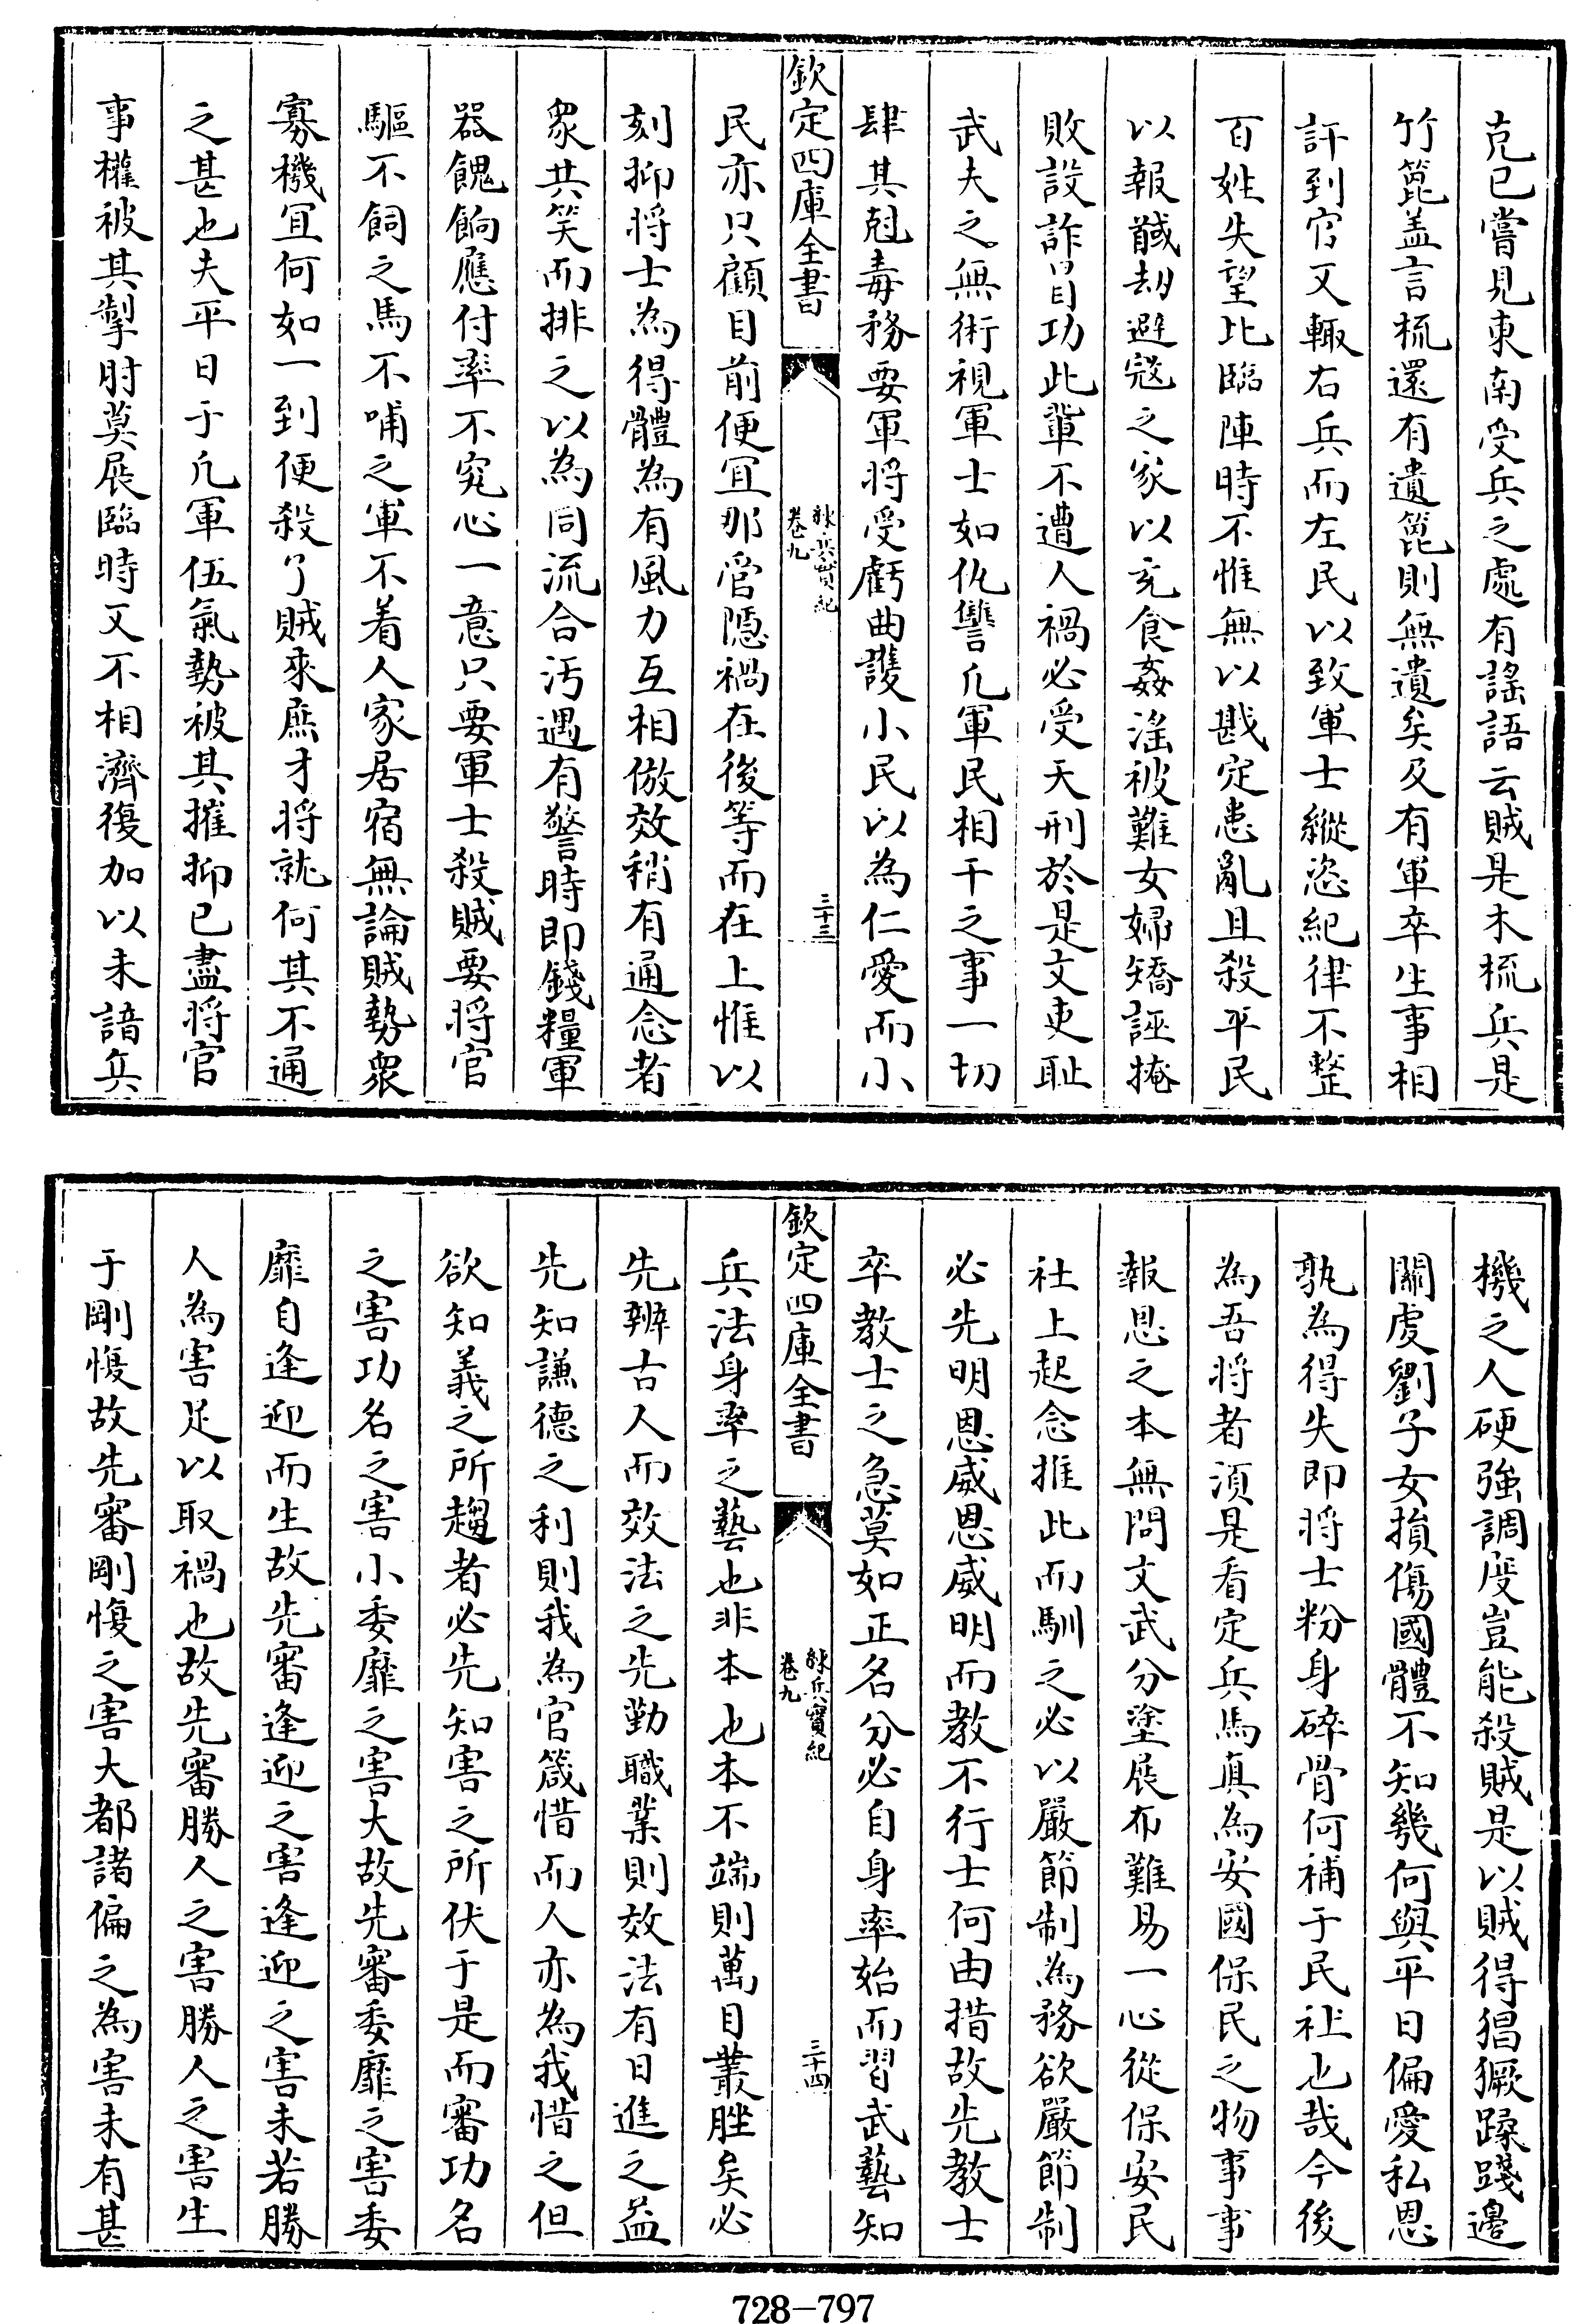 克已嘗見東南受兵之處有謡語云賊是木梳兵是
竹篦盖言梳還有遺篦則無遺矣及有軍卒生事相
訐到官又輙右兵而左民以致軍士縱恣紀律不整
百姓失望比臨陣時不惟無以戡定患亂且殺平民
以報馘刼避宼之家以充食姦滛被難女婦矯誣掩
敗設詐冒功此輩不遭人禍必受天刑於是文吏耻
武夫之無術視軍士如仇讐凡軍民相干之事一切
肆其尅毒務要軍将受虧曲護小民以為仁愛而小
欽定四庫全書
練兵實紀
卷九
三十三
民亦只顧目前便宜那管隠禍在後等而在上惟以
刻抑将士為得體為有風力互相倣效稍有通念者
衆共笑而排之以為同流合汚遇有警時即錢糧軍
器餽餉應付率不究心一意只要軍士殺賊要将官
驅不飼之馬不哺之軍不着人家居宿無論賊勢衆
寡機宜何如一到便殺了賊來庶才将就何其不通
之甚也夫平日于凡軍伍氣勢被其摧抑已盡将官
事權被其掣肘莫展臨時又不相濟復加以未諳兵
機之人硬強調度豈能殺賊是以賊得猖獗蹂踐邊
關虔劉子女損傷國體不知幾何與平日偏愛私恩
孰為得失即将士粉身碎骨何補于民社也哉今後
為吾将者須是看定兵馬真為安國保民之物事事
報恩之本無問文武分塗展布難易一心從保安民
社上起念推此而馴之必以嚴節制為務欲嚴節制
必先明恩威恩威明而教不行士何由措故先教士
卒教士之急莫如正名分必自身率始而習武藝知
欽定四庫全書
練兵實紀
卷九
三十四
兵法身率之藝也非本也本不端則萬目叢脞矣必
先辨古人而效法之先勤職業則效法有日進之益
先知謙德之利則我為官箴惜而人亦為我惜之但
欲知義之所趨者必先知害之所伏于是而審功名
之害功名之害小委靡之害大故先審委靡之害委
靡自逢迎而生故先審逢迎之害逢迎之害未若勝
人為害足以取禍也故先審勝人之害勝人之害生
于剛愎故先審剛愎之害大都諸偏之為害未有甚
728-797